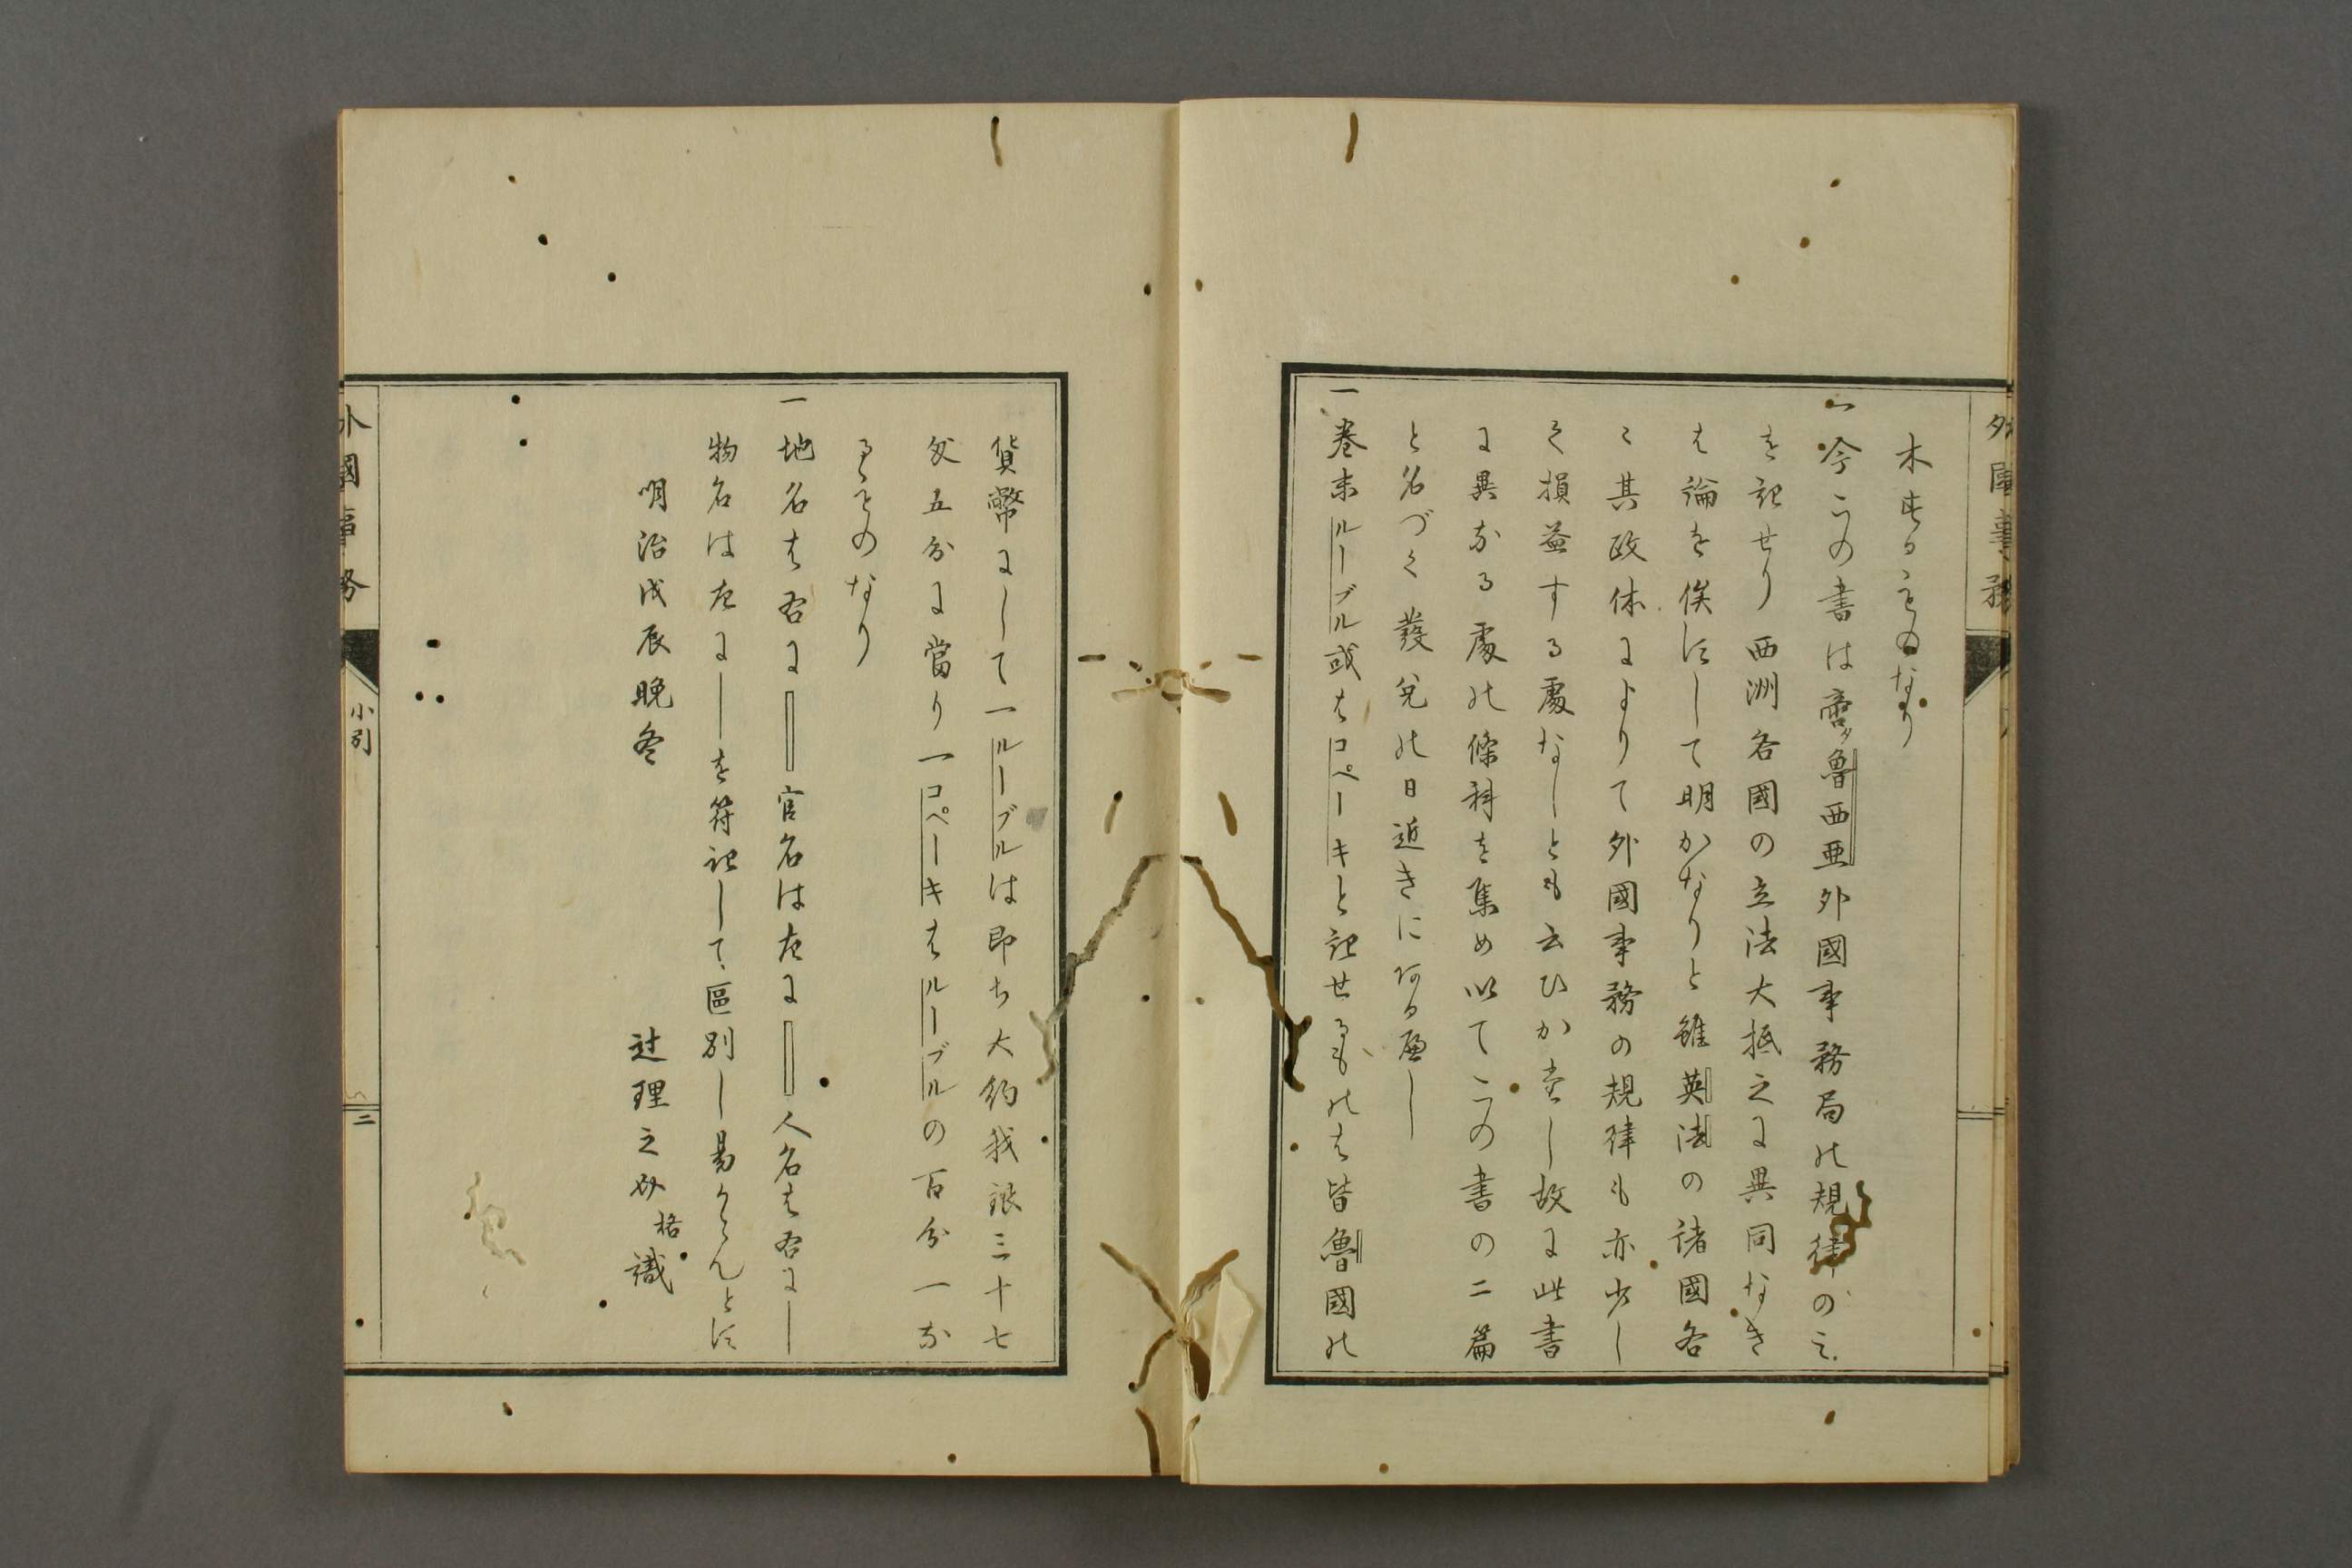 外國事務
木せるものなり
一今この書は啻タ魯西亜外國事務局の規律のミ
を記せり西洲各國の立法大抵之に異同なき
は論を俟にして明かなりと雖英法の諸國各
〻其政体によりて外國事務の規律も亦少し
く損益する處なしとも云ひかたし故に此書
に異なる處の條科を集め以てこの書の二篇
と名づく發兌の日近きにある可し
一巻末ルーブル或はコペーキと記せるものは皆魯國の
貨幣にして一ルーブルは即ち大約我銀三十七
匁五分に當り一コペーキはルーブルの百分一な
るものなり
一地名は右に‖官名は左に‖人名は右に｜
物名は左に｜を符記して區別し易からんとに
明治戊辰晩冬
辻理之介格識
外國事務
小引
二